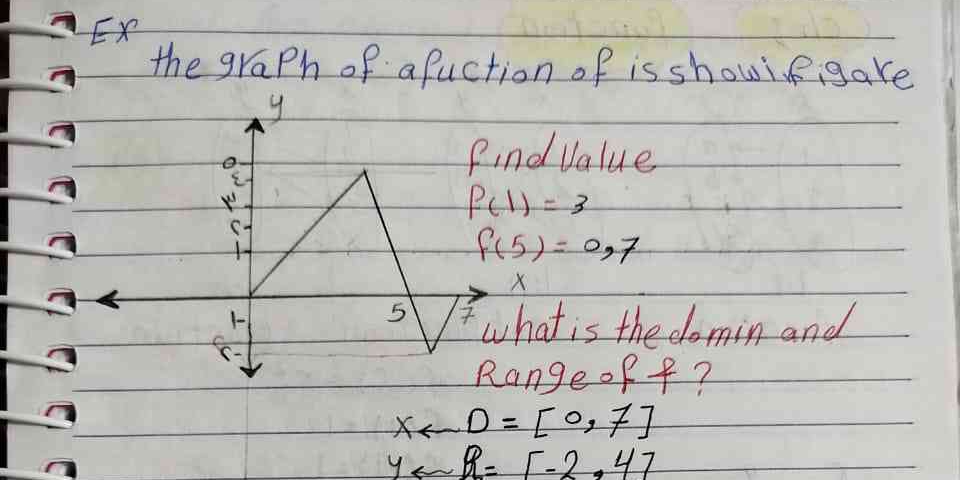 EX
the graph of afuction of is showi figare
y
find Value
f(1) = 3
f(5) = 0,7
x
5
7
what is the domin and
Range of f ?
x ← D = [0, 7]
y ← R = [-2, 4]